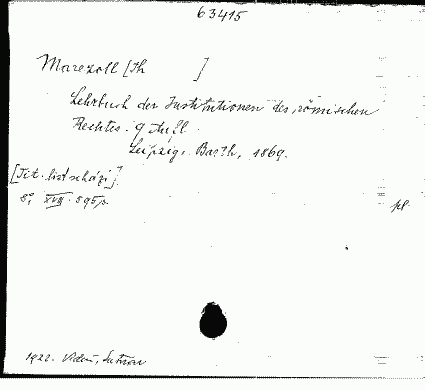 63415
Marezoll [Th ]
Lehrbuch der Institutionen des römischen
Rechtes. 9 Aufl.
Leipzig, Barth, 1869.
[Tit. list schází]
8°, XVIII. 595 s.
pl.
1922. Vídeň,